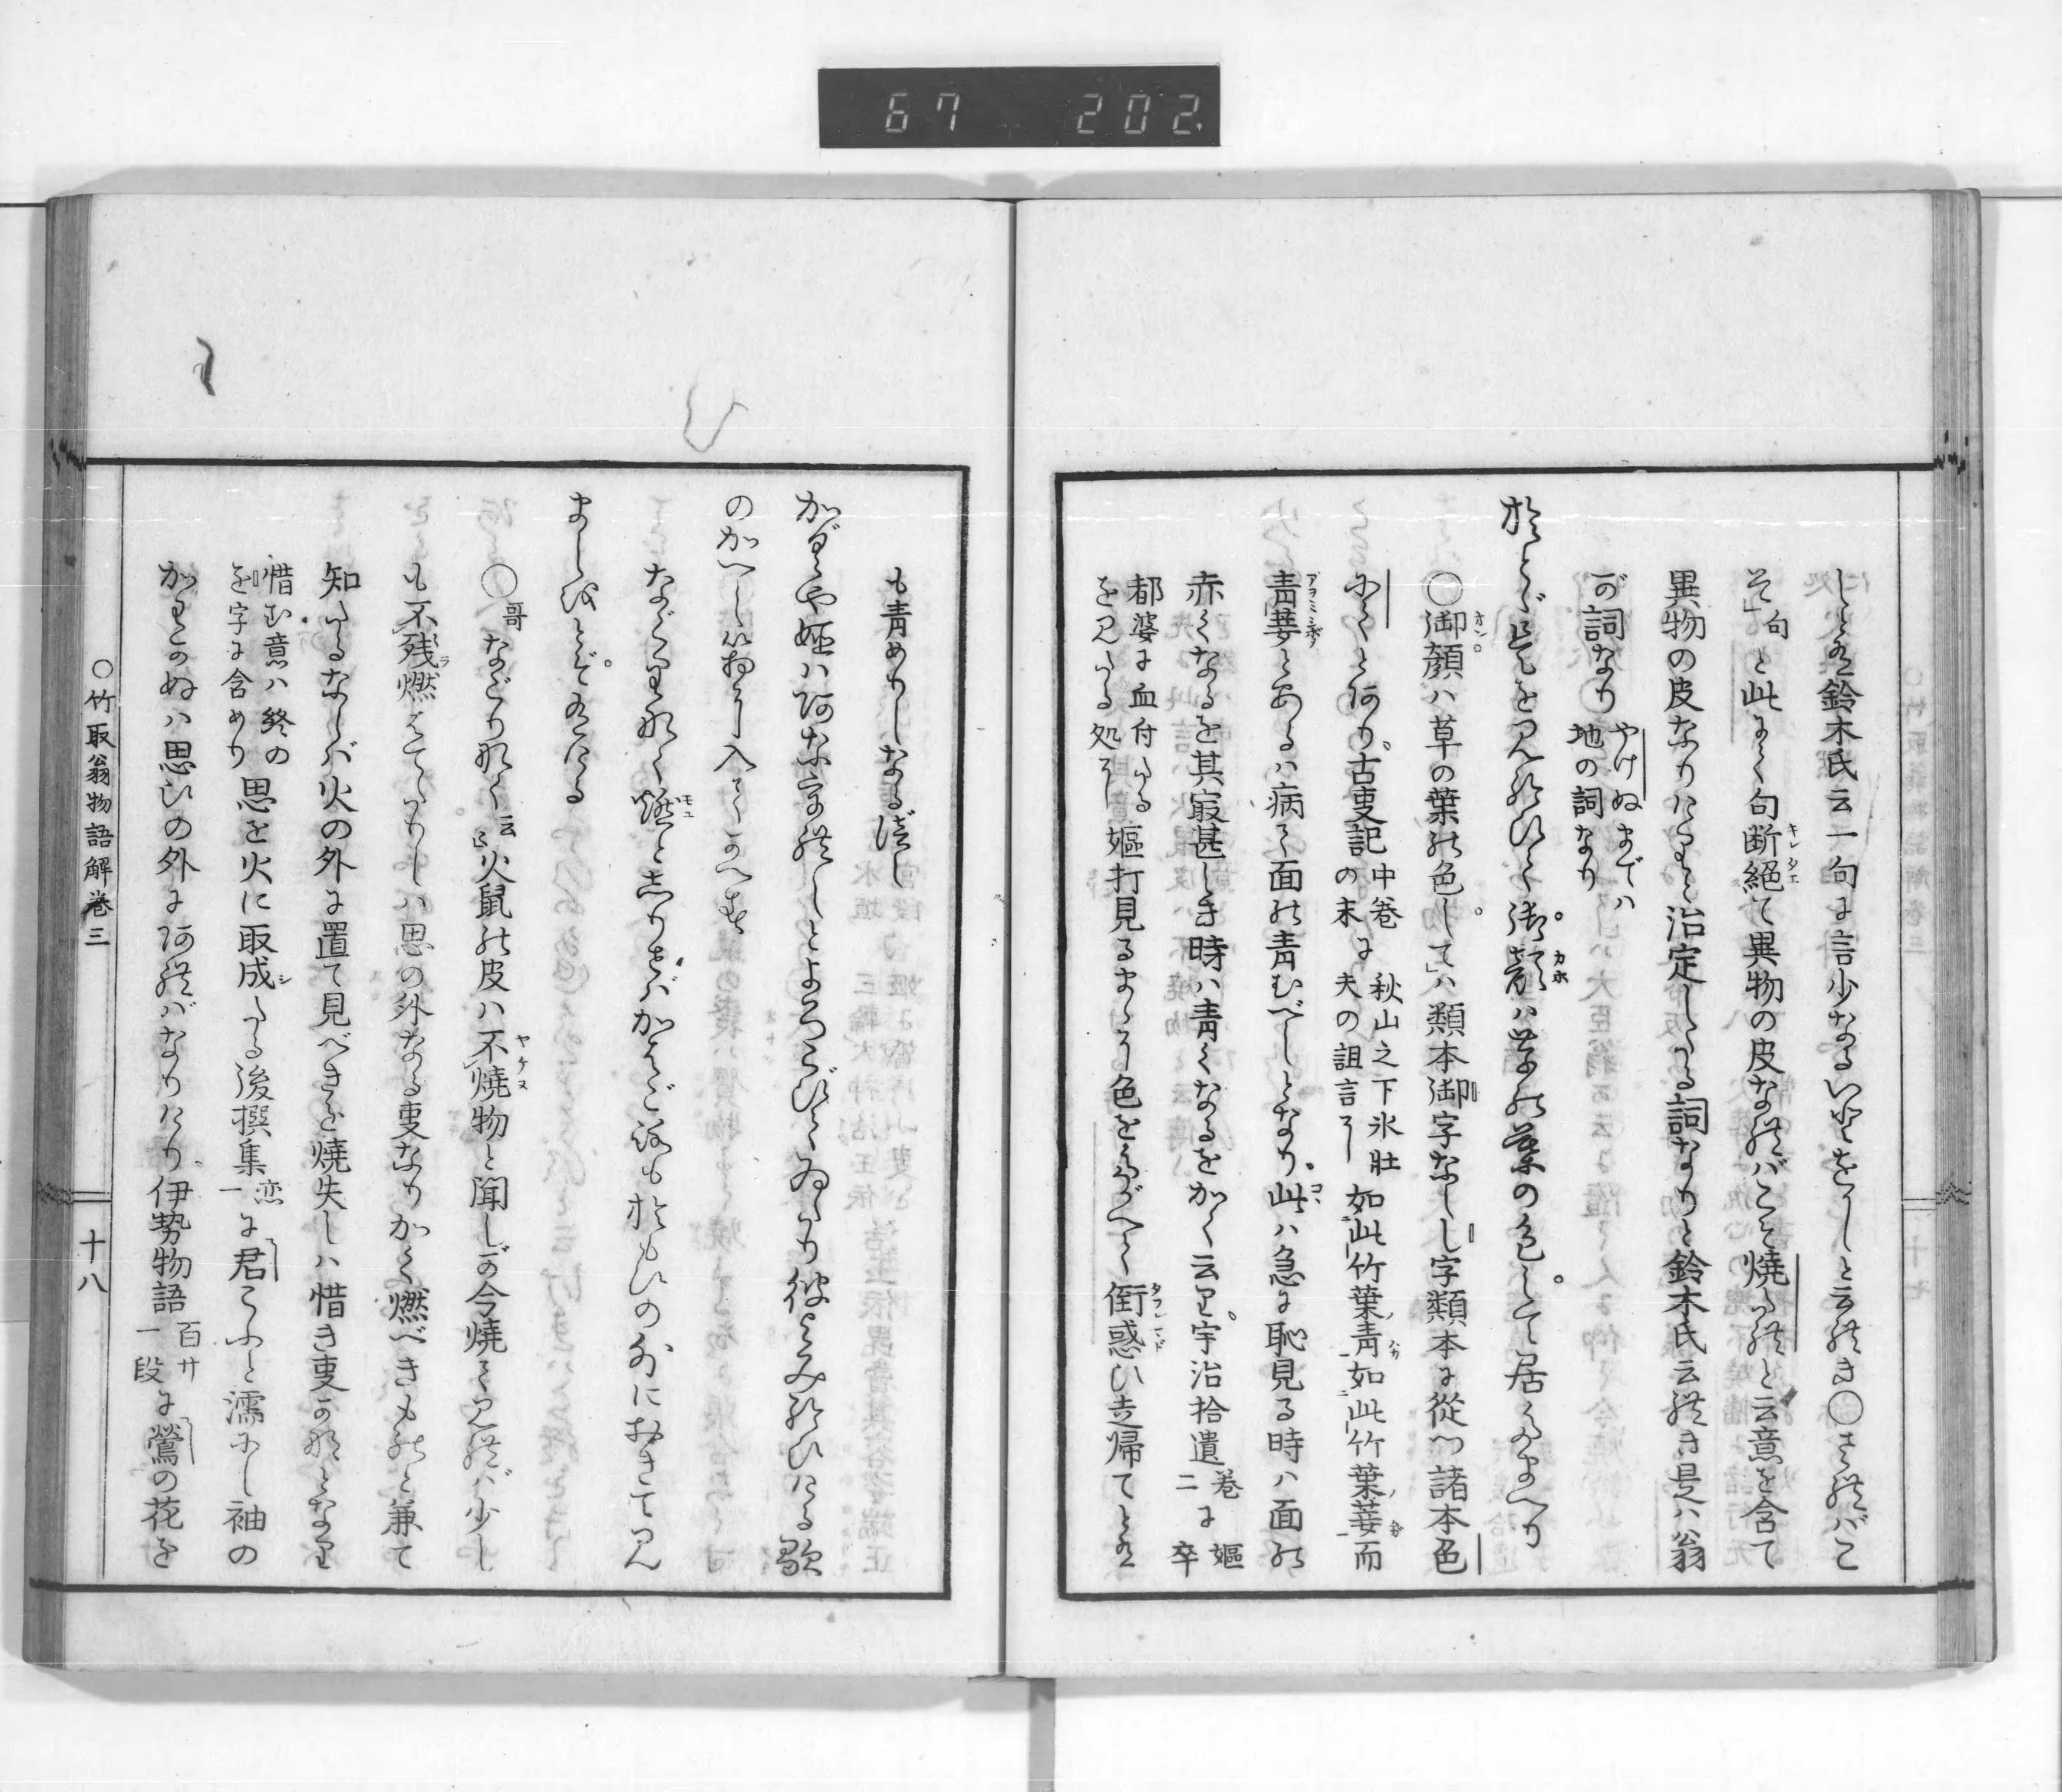 67 202
しとも鈴木氏云一句は言少なるいひざましと云れき〇さればこ
そ句と此にて句断絶て異物の皮なればこそ焼たれと云意を含て
異物の皮なりけりと治定したる詞なりと鈴木氏云れき是ハ翁
が詞なりやけぬまでハ
地の詞なり
おとゞ是を見給ひて御顔ハ草の葉の色して居たまへり
〇御顔ハ草の葉の色して」ハ類本御字なしし字類本に従つ諸本色
にてとあり古事記中巻の末に秋山之下氷壮夫の詛言に如此竹葉青如此竹葉萎而
青萎とあるハ病て面の青むべしとなり此ハ急に恥見る時ハ面の
赤くなるを其最甚しき時ハ青くなるをかく云り宇治拾遺巻二に嫗卒
都婆に血付たるを見たる処に嫗打見るまゝに色をたがへて俉惑ひ走帰てとも
も青めりしなる徒し
かぐや姫ハあなうれしとよろこびてゐたり彼よみ給ひける歌
のかへし箱に入てかへす
なごりなく燃としりせばかはごろもおもひの外におきて見
ましをとぞありける
〇哥なごりなく云々火鼠の皮ハ不焼物と聞しが今焼て見れバ少し
も不残燃はてたりしハ思の外なる事なりかく燃べきものと兼て
知たるならバ火の外に置て見べきを焼失しハ惜き事かなとなり
惜む意ハ終のを字に含めり思を火に取成したる後撰集恋一に君こふと濡にし袖の
かわかぬハ思ひの外にあればなりけり伊勢物語百廿一段に鶯の花を
〇竹取翁物語解巻三
十八